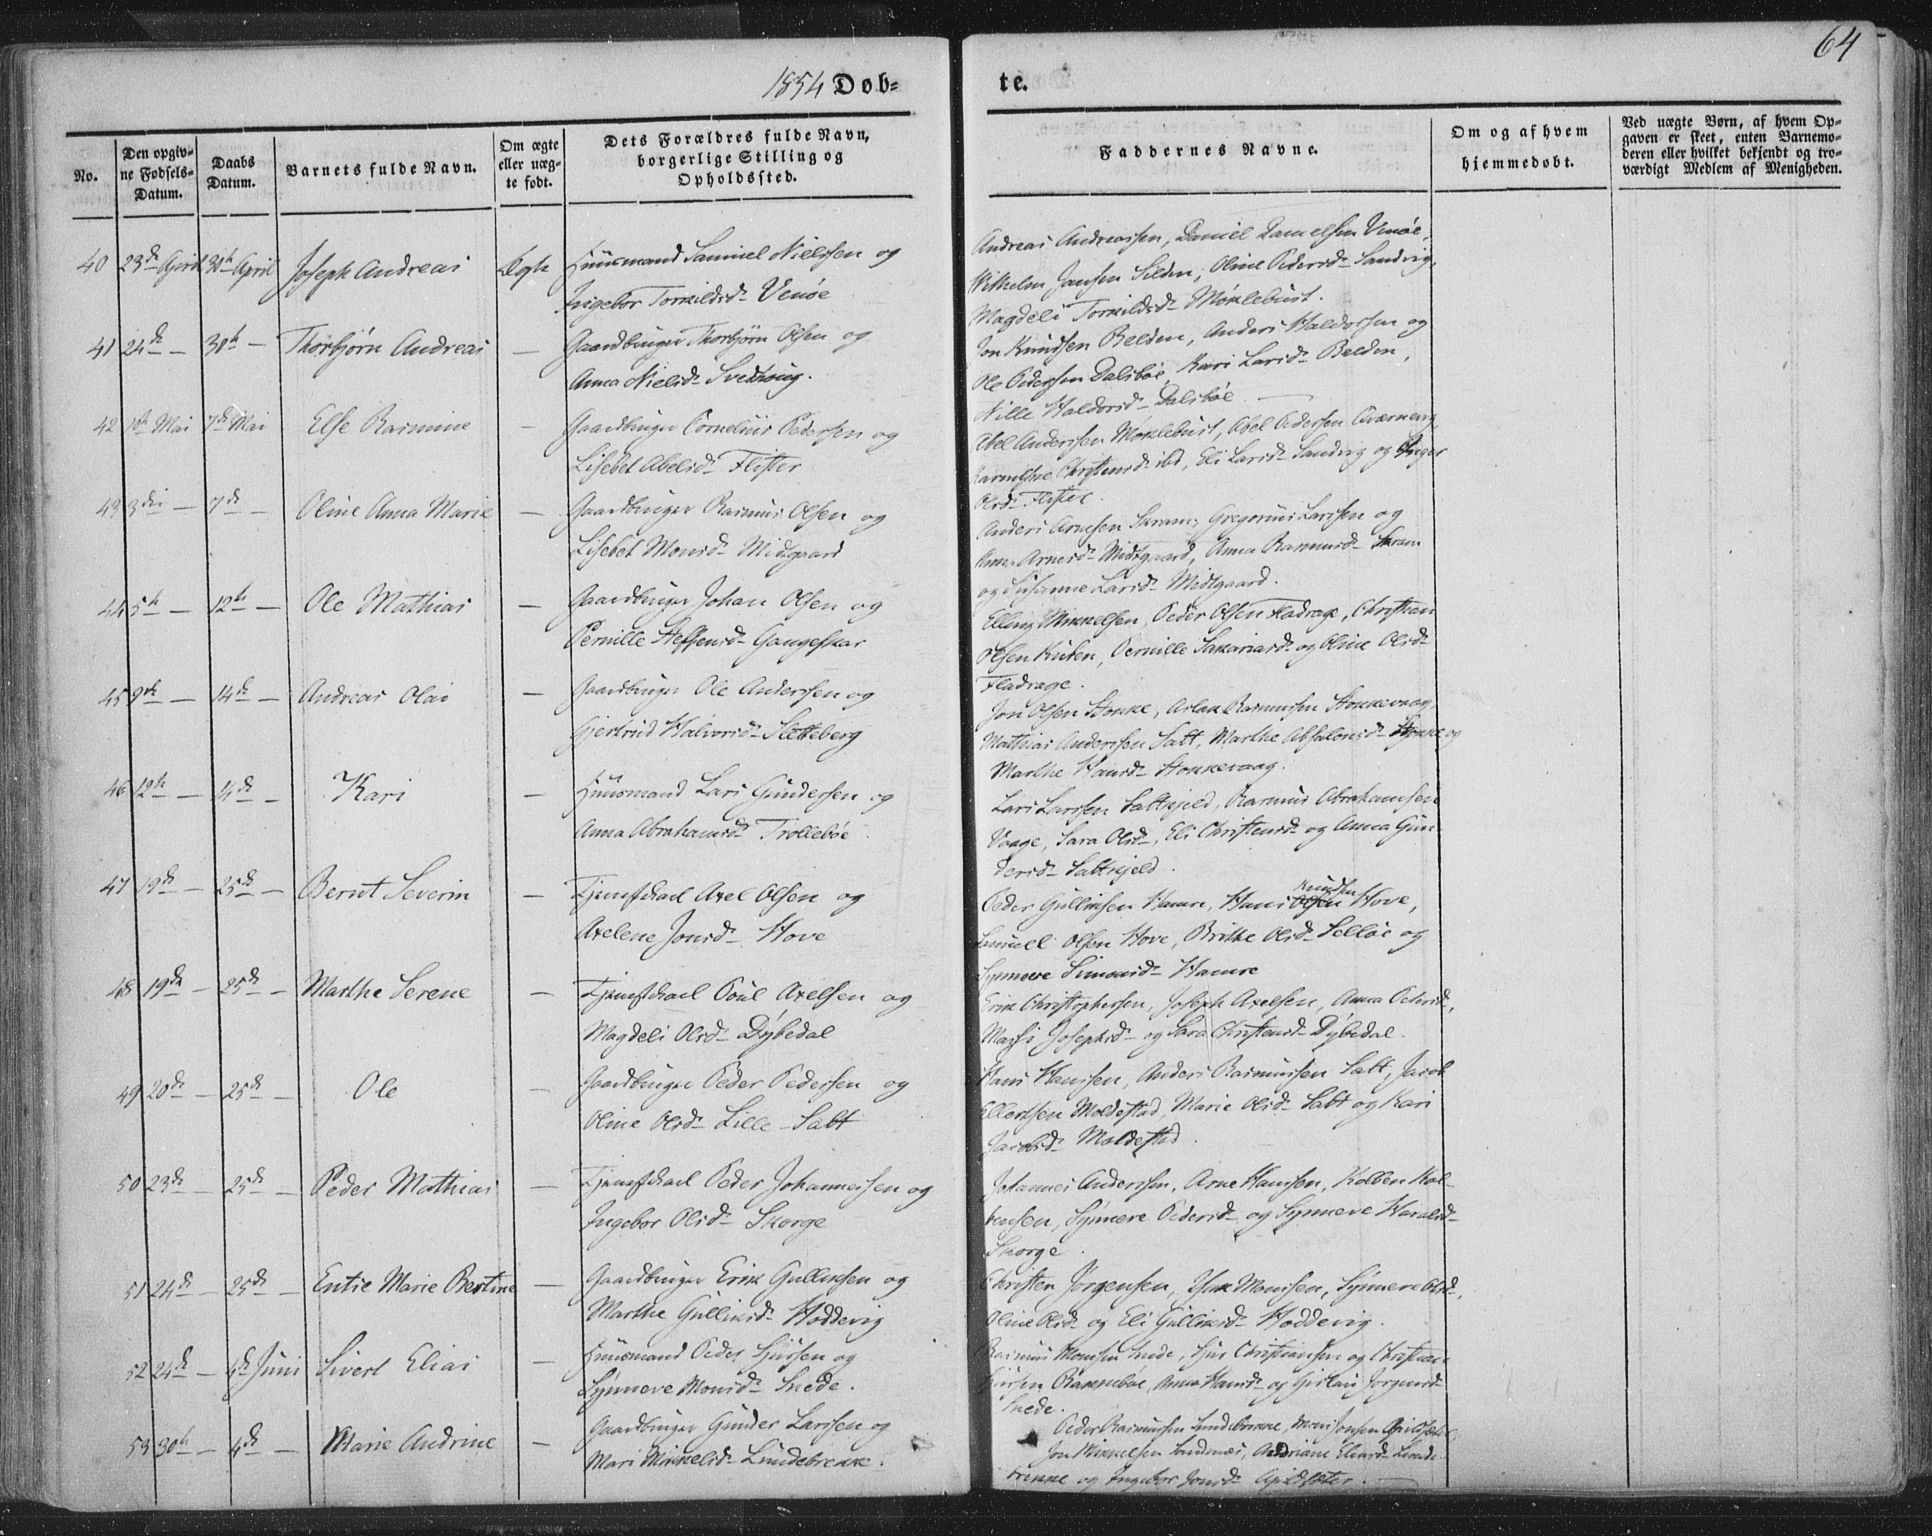 64
1854 Døb-
te.
No.
Den opgiv-
ne Fødsels-
Datum.
Daabs
Datum.
Barnets fulde Navn.
Om ægte
eller uæg-
te født.
Dets Forældres fulde Navn,
borgerlige Stilling og
Opholdssted.
Faddernes Navne.
Om og af hvem
hjemmedøbt.
Ved uægte Børn, af hvem Op-
gaven er skeet, enten Barnemo-
deren eller hvilket bekjendt og tro-
værdigt Medlem af Menigheden.
40 23de April 30te April Joseph Andreas Ægte Huusmand Samuel Nielssen og
Ingebor Tormildsd. Venøe
Andreas Andreassen, Daniel Danielsen Venøe,
Wilhelm Jansen Silden, Oline Pedersd. Sandvig,
Magdeli Tormildsd. Møklebust.
41 24de — 30te — Thorbjørn Andreas — Gaardbruger Thorbjørn Olsen og
Anna Nielsd. Svedhoug.
Jon Knudsen Belden, Anders Haldorsen og
Ole Pedersen Dalsbøe, Kari Larsd. Belden,
Nille Haldorsd. Dalsbøe
42 1ste Mai 7de Mai Else Rasmine — Gaardbruger Cornelius Pedersen og
Lisebet Abelsd. Flister
Abel Anderssen Møklebust, Abel Pedersen
Christensd. ibd, Eli Larsd. Sandvig og Inger
Olsd. Flister.
43 3die — 7de — Oline Anna Marie — Gaardbruger Rasmus Olsen og
Lisebet Monsd. Midtgaard
Anders Arnesen Skram, Gregorius Larssen og
Anne Arnesd. Midtgaard, Anna Rasmusd. Skram
og Susanne Larsd. Midtgaard.
44 5te — 12te — Ole Mathias — Gaardbruger Johan Olsen og
Pernille Steffensd. Gangeskar
Elling Mikkelsen, Peder Olsen Fladrage, Christian
Olsen, Pernille Sakariasd. og Oline Olsd.
Fladrage.
45 9de — 14de — Andreas Olai — Gaardbruger Ole Anderssen og
Gjertrud Halvorsd. Sletteberg
Jon Olsen Stokke, Aslak Rasmussen Stokkevaag,
Mathias Anderssen Salt, Marthe Absalonsd. Stokke og
Marthe Hansd. Stokkevaag.
46 12te — 14de — Kari — Huusmand Lars Gundersen og
Anna Abrahamsd. Trollebøe.
Lars Larssen Saltkjeld, Rasmus Abrahamsen
Vaage, Sara Olsd., Eli Christensd. og Anna Gun
dersd. Saltkjeld.
47 19de — 25de — Bernt Severin — Tjenestekarl Axel Olsen og
Axelene Jonsd. Hove
Knudsen
Peder Gullaksen Hamre, Hans Olsen Hove,
Samuel Olsen Hove, Brithe Olsd. Selløe og
Synneve Simonsd. Hamre
48 19de — 25de — Marthe Serene — Tjenestekarl Poul Axelsen og
Magdeli Olsd. Dybedal
Erik Christophersen, Joseph Axelsen, Anna Pedersd.,
Josephsd. og Sara Christensd. Dybedal.
49 20de — 25de — Ole — Gaardbruger Peder Pedersen og
Oline Olsd. Lille-Salt
Hans Hanssen, Anders Rasmussen Salt, Jacob
Ellertsen Moldestad, Marie Olsd. Salt og Kari
Jacobsd. Moldestad.
50 23de — 25de — Peder Mathias — Tjenestekarl Peder Johannessen og
Ingebor Olsd. Skorge
Johannes Anderssen, Arne Hanssen, Kolben Kol-
bensen, Synneve Pedersd. og Synneve Haralsd.
Skorge.
51 24de — 25de — Entie Marie Bertine — Gaardbruger Erik Gullaksen og
Marthe Gullaksd. Hoddevig
Christen Jørgensen, Isak Monssen, Synneve Olsd.,
Oline Olsd. og Eli Gullaksd. Hoddevig.
52 24de — 4de Juni Sivert Elias — Huusmand Peder Sjurssen og
Synneve Monsd. Snede.
Rasmus Monssen Snede, Sjur Christiansen og Christian
Sjursen, Anna Hansd. og Jørgensd.
Snede.
53 30te — 4de — Marie Andrine — Gaardbruger Gunder Larssen og
Mari Mikkelsd. Lundebrekke.
Peder Rasmussen Lundebrekke, Mons Jonsen Apildsæter,
Jon Mikkelsen Sandnæs, Andriane Eliasd. Lunde
brekke og Ingebor Jonsd. Apildsæter. —